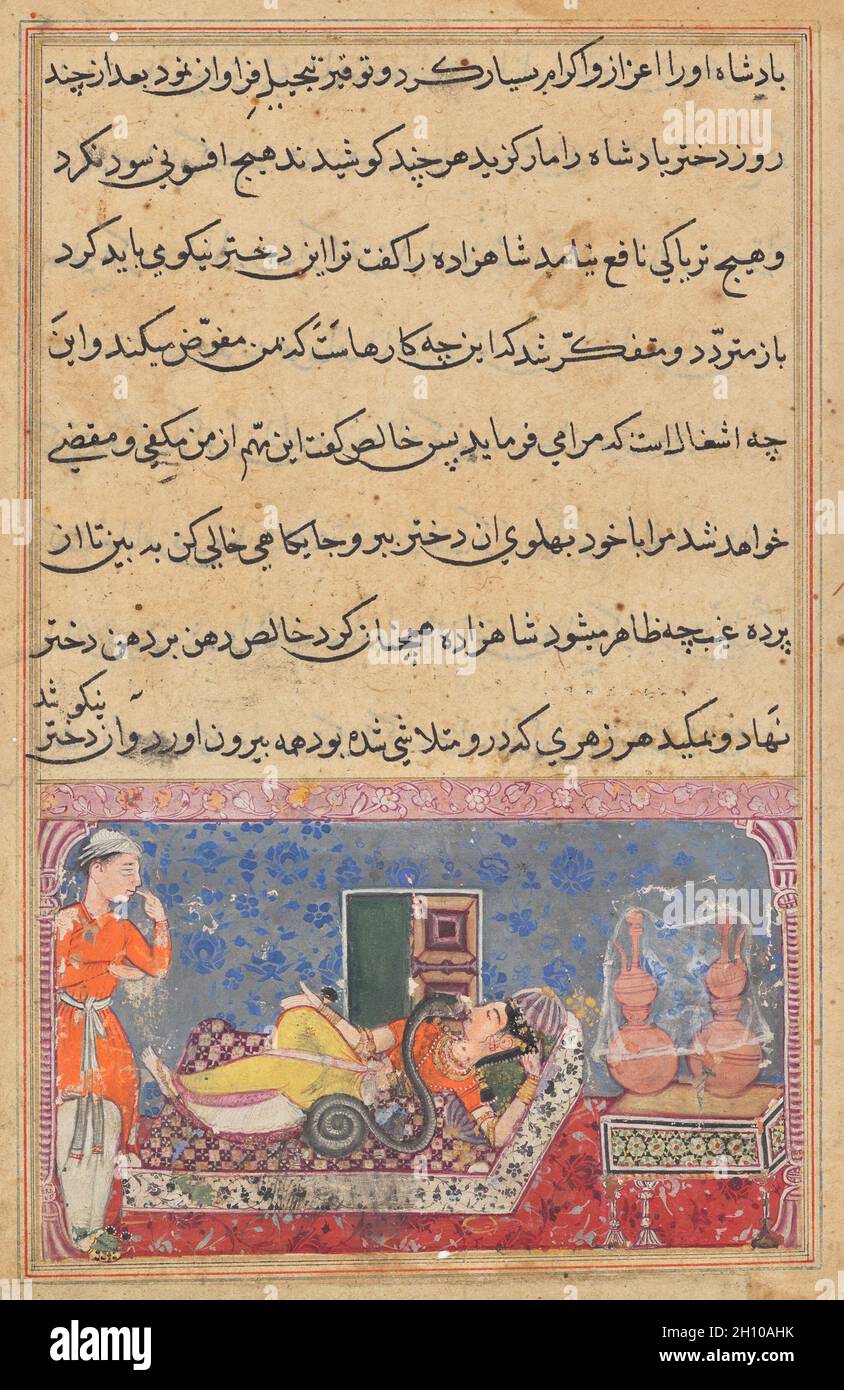 بادشاه اورا اعزاز واکرام بسیار کرد و توقیر تبجیل فراوان نمود بعد از چند
روز دختر بادشاه را مار کزید هر چند کوشیدند هیچ افسونی سود نکرد
و هیچ تریاکی نافع نیامد شاهزاده را کفت ترا این دختر نیکو می باید کرد
باز متردّد و متفکّر شد که این چه کارهاست که بمن مفوّض میکند و این
چه اشغال است که مرا می فرماید پس خالص کفت این مهّم از من مکفی و مقضی
خواهد شد مرا با خود بهلوی ان دختر ببر و جایکاهی خالی کن به بین تا از
پرده غیب چه ظاهر میشود شاهزاده همچنان کرد خالص دهن بر دهن دختر
نهاد و بمکید هر زهری که درو متلاشی شده بود همه بیرون اورد و آن دختر
نیکو شد
alamy
Image ID: 2H10AHK
www.alamy.com